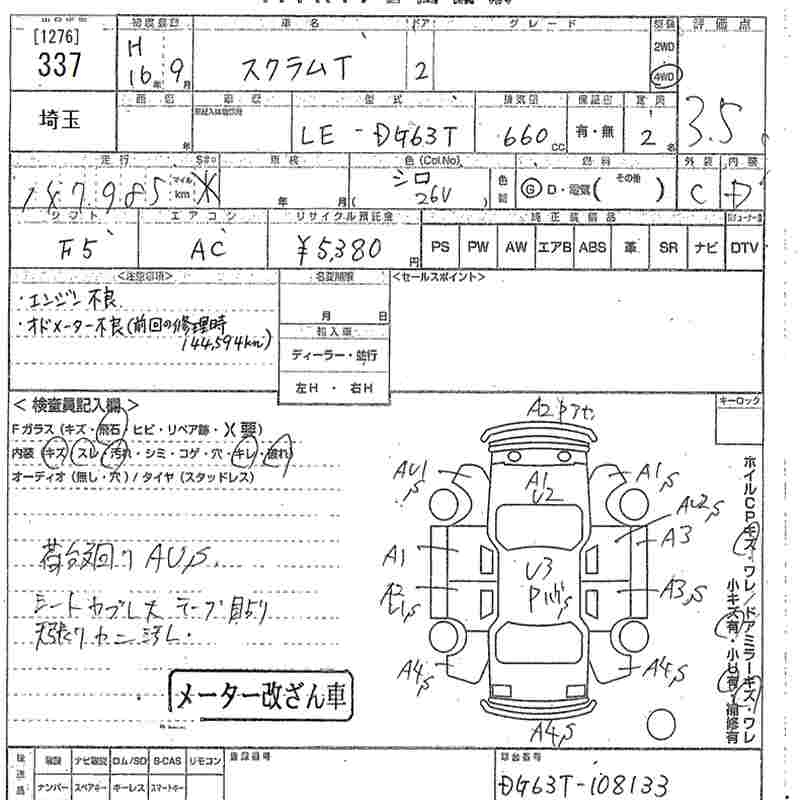 [1276]
337
初度登録
H
16年 9月
車名
スクラムT
ドア
2
グレード
2WD
4WD
評価点
3.5
埼玉
年
型式
LE-DG63T
排気量
660 CC
有・無
定員
2 名
走行
187985
マイル
km
車検
年 月
色(Col.No)
シロ
26U
燃料
G D・電気( その他 )
外装
C
内装
D
シフト
F5
エアコン
AC
リサイクル預託金
¥5,380 円
純正装備品
PS PW AW エアB ABS 革 SR ナビ DTV
<注意事項>
・エンジン不良
・オドメーター不良(前回の修理時
144,594km)
名変期限
月 日
輸入車
ディーラー・並行
左H ・ 右H
<セールスポイント>
<検査員記入欄>
Fガラス(キズ・飛石・ヒビ・リペア跡・X 要)
内装(キズ・スレ・汚れ・シミ・コゲ・穴・キレ・破れ)
オーディオ(無し・穴)/タイヤ(スタッドレス)
荷台廻り AU,S
シート カブレス テープ貼り
天張り
メーター改ざん車
キーロック
A2
AU1,S
A1
U2
A1,S
AU2,S
A1
A3
U3
A2
A3,S
A4,S
A4,S
A4,S
ホイルCPキズ・ワレ/ドアミラーキズ・ワレ
小キズ有・小U有・補修有
ナビ取説 ロム/SD B-CAS リモコン
ナンバー スペアキー キーレス スマートキー
登録番号
車台番号
DG63T-108133